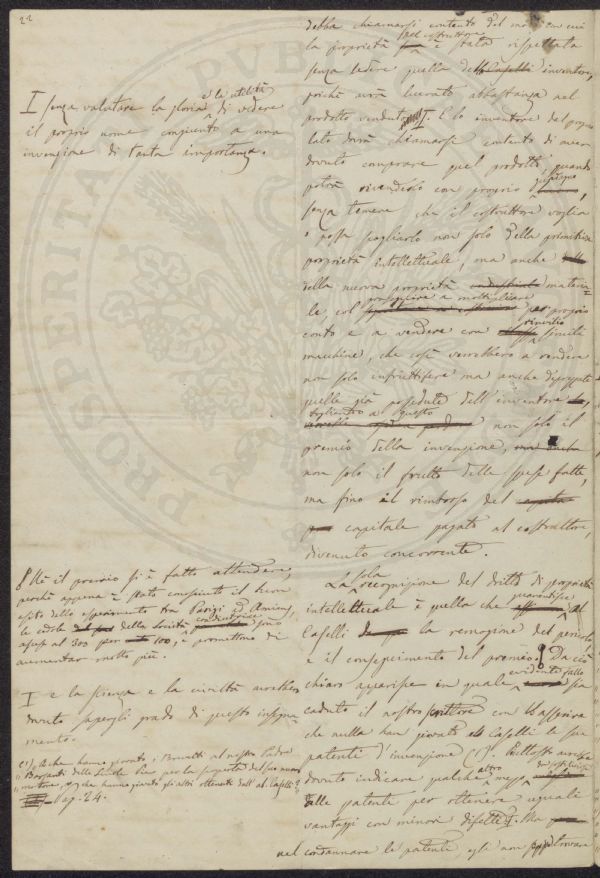 22
debba chiamarsi contento del modo con cui
pel costruttore
la proprietà è stata rispettata
senza ledere quella dell'inventore,
poichè avrà lucrato abbastanza nel
prodotto venduto I. E lo inventore
dovrà chiamarsi contento di aver
dovuto comprare quel prodotto, quando
potrà rivenderlo con proprio
senza temere che il costruttore voglia
e possa spogliarlo non solo della primitiva
proprietà intellettuale, ma anche
della nuova proprietà industriale materia=
le, col proseguire a moltiplicare per proprio
conto e a vendere con simili
macchine, che così verrebbero a rendere
non solo infruttifere ma anche
quelle già possedute dell'inventore
togliendo a questo non solo il
premio della invenzione, ma anche
non solo il frutto delle spese fatte,
ma fino il rimborso del
capitale pagato al costruttore,
divenuto concorrente.
sola
La recognizione del dritto di proprietà
intellettuale è quella che guarentisce al
Caselli la remozione del pericolo,
e il conseguimento del premio. Da ciò
chiaro apparisce in quale evidente fallo sia
caduto il nostro scrittore con l'asserire
che nulla han giovato al Caselli le sue
patenti d'invenzione (1). Piuttosto avrebbe
dovuto indicare qualche altro mezzo
delle patenti per ottenere uguali
vantaggi con minori difetti I. Ma
nel condannare le patenti, egli non trovare
I senza valutare la gloria e la utilità di vedere
il proprio nome congiunto a una
invenzione di tanta importanza.
Nè il premio si è fatto attendere,
perchè appena è stato conosciuto il buon
esito dello esperimento tra Parigi ed Amiens,
le cedole della Società
ascese al 300 per 100, e promettono di
aumentar molto più.
I e la scienza e la civiltà avrebbero
dovuto sapergli grado di questo insegna
mento.
(1) A che hanno giovato i Brevetti al nostro Padre
" Barsanti delle Scuole Pie per la scoperta del suo nuovo
" motore, a che hanno giovato gli altri ottenuti dall'ab. Caselli?
Pag. 24.
PVBLICA
PROSPERITA